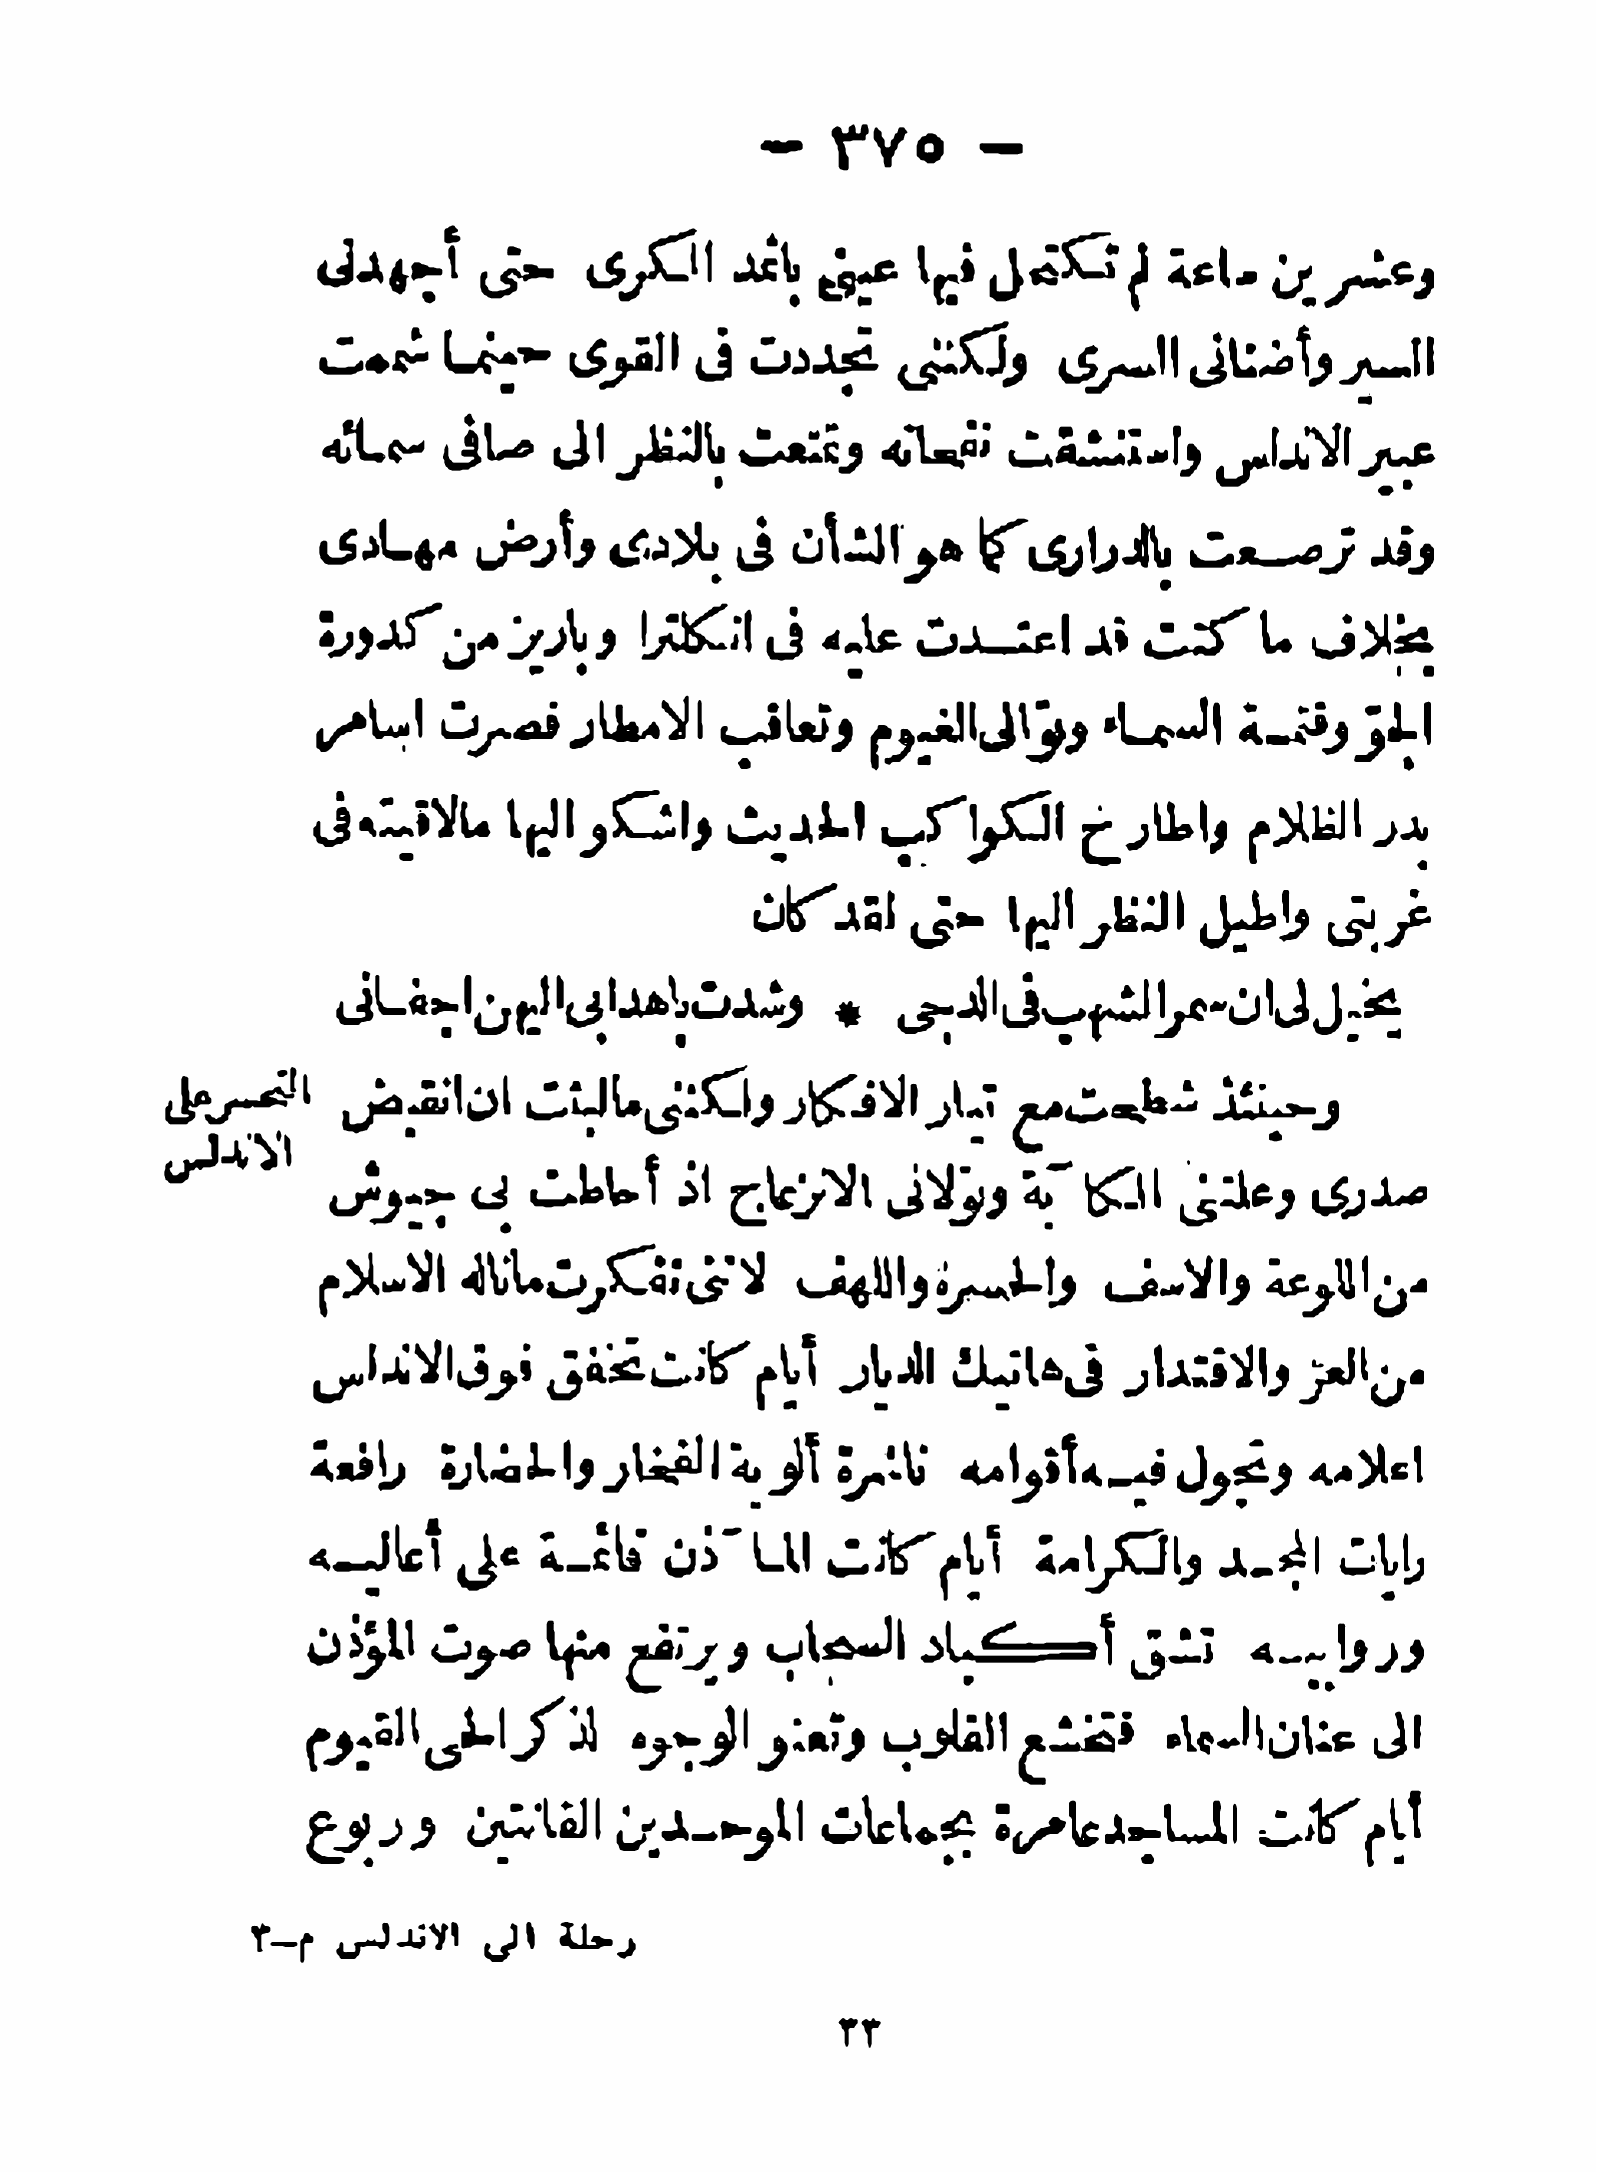 - ٣٧٥ -
وعشرين ساعة لم تكتحل فيها عينى باثمد الكرى حتى أجهدنى
السير وأضنانى السرى ولكننى تجددت فى القوى حينما شممت
عبير الاندلس واستنشقت نفحاته وتمتعت بالنظر الى صافى سمائه
وقد ترصعت بالدرارى كما هو الشأن فى بلادى وأرض مهادى
بخلاف ما كنت قد اعتدت عليه فى انكلترا وباريز من كدورة
الجوّ وقتمة السماء وتوّالى الغيوم وتعاقب الامطار فصرت اسامر
بدر الظلام واطارح الكواكب الحديث واشكو اليها مالاقيته فى
غربتى واطيل النظر اليها حتى لقد كان
يخيل لى ان سمر الشهب فى الدجى * وشدت باهدابى اليهن اجفانى
وحينئذ شطحت مع تيار الافكار ولكننى مالبثت ان انقبض
التحسر على
الاندلس
صدرى وعلتنى الكآبة وتولانى الانزعاج اذ أحاطت بى جيوش
من اللوعة والاسف والحسرة واللهف لاننى تفكرت ماناله الاسلام
من العز والاقتدار فى هاتيك الديار أيام كانت تخفق فوق الاندلس
اعلامه وتجول فيه أقوامه ناشرة ألوية الفخار والحضارة رافعة
رايات المجد والكرامة أيام كانت المآذن قائمة على أعاليه
وروابيه تشق أكباد السحاب ويرتفع منها صوت المؤذن
الى عنان السماء فتخشع القلوب وتعنو الوجوه لذكر الحى القيوم
أيام كانت المساجد عامرة بجماعات الموحدين القانتين وربوع
رحلة الى الاندلس م-٣
٣٣